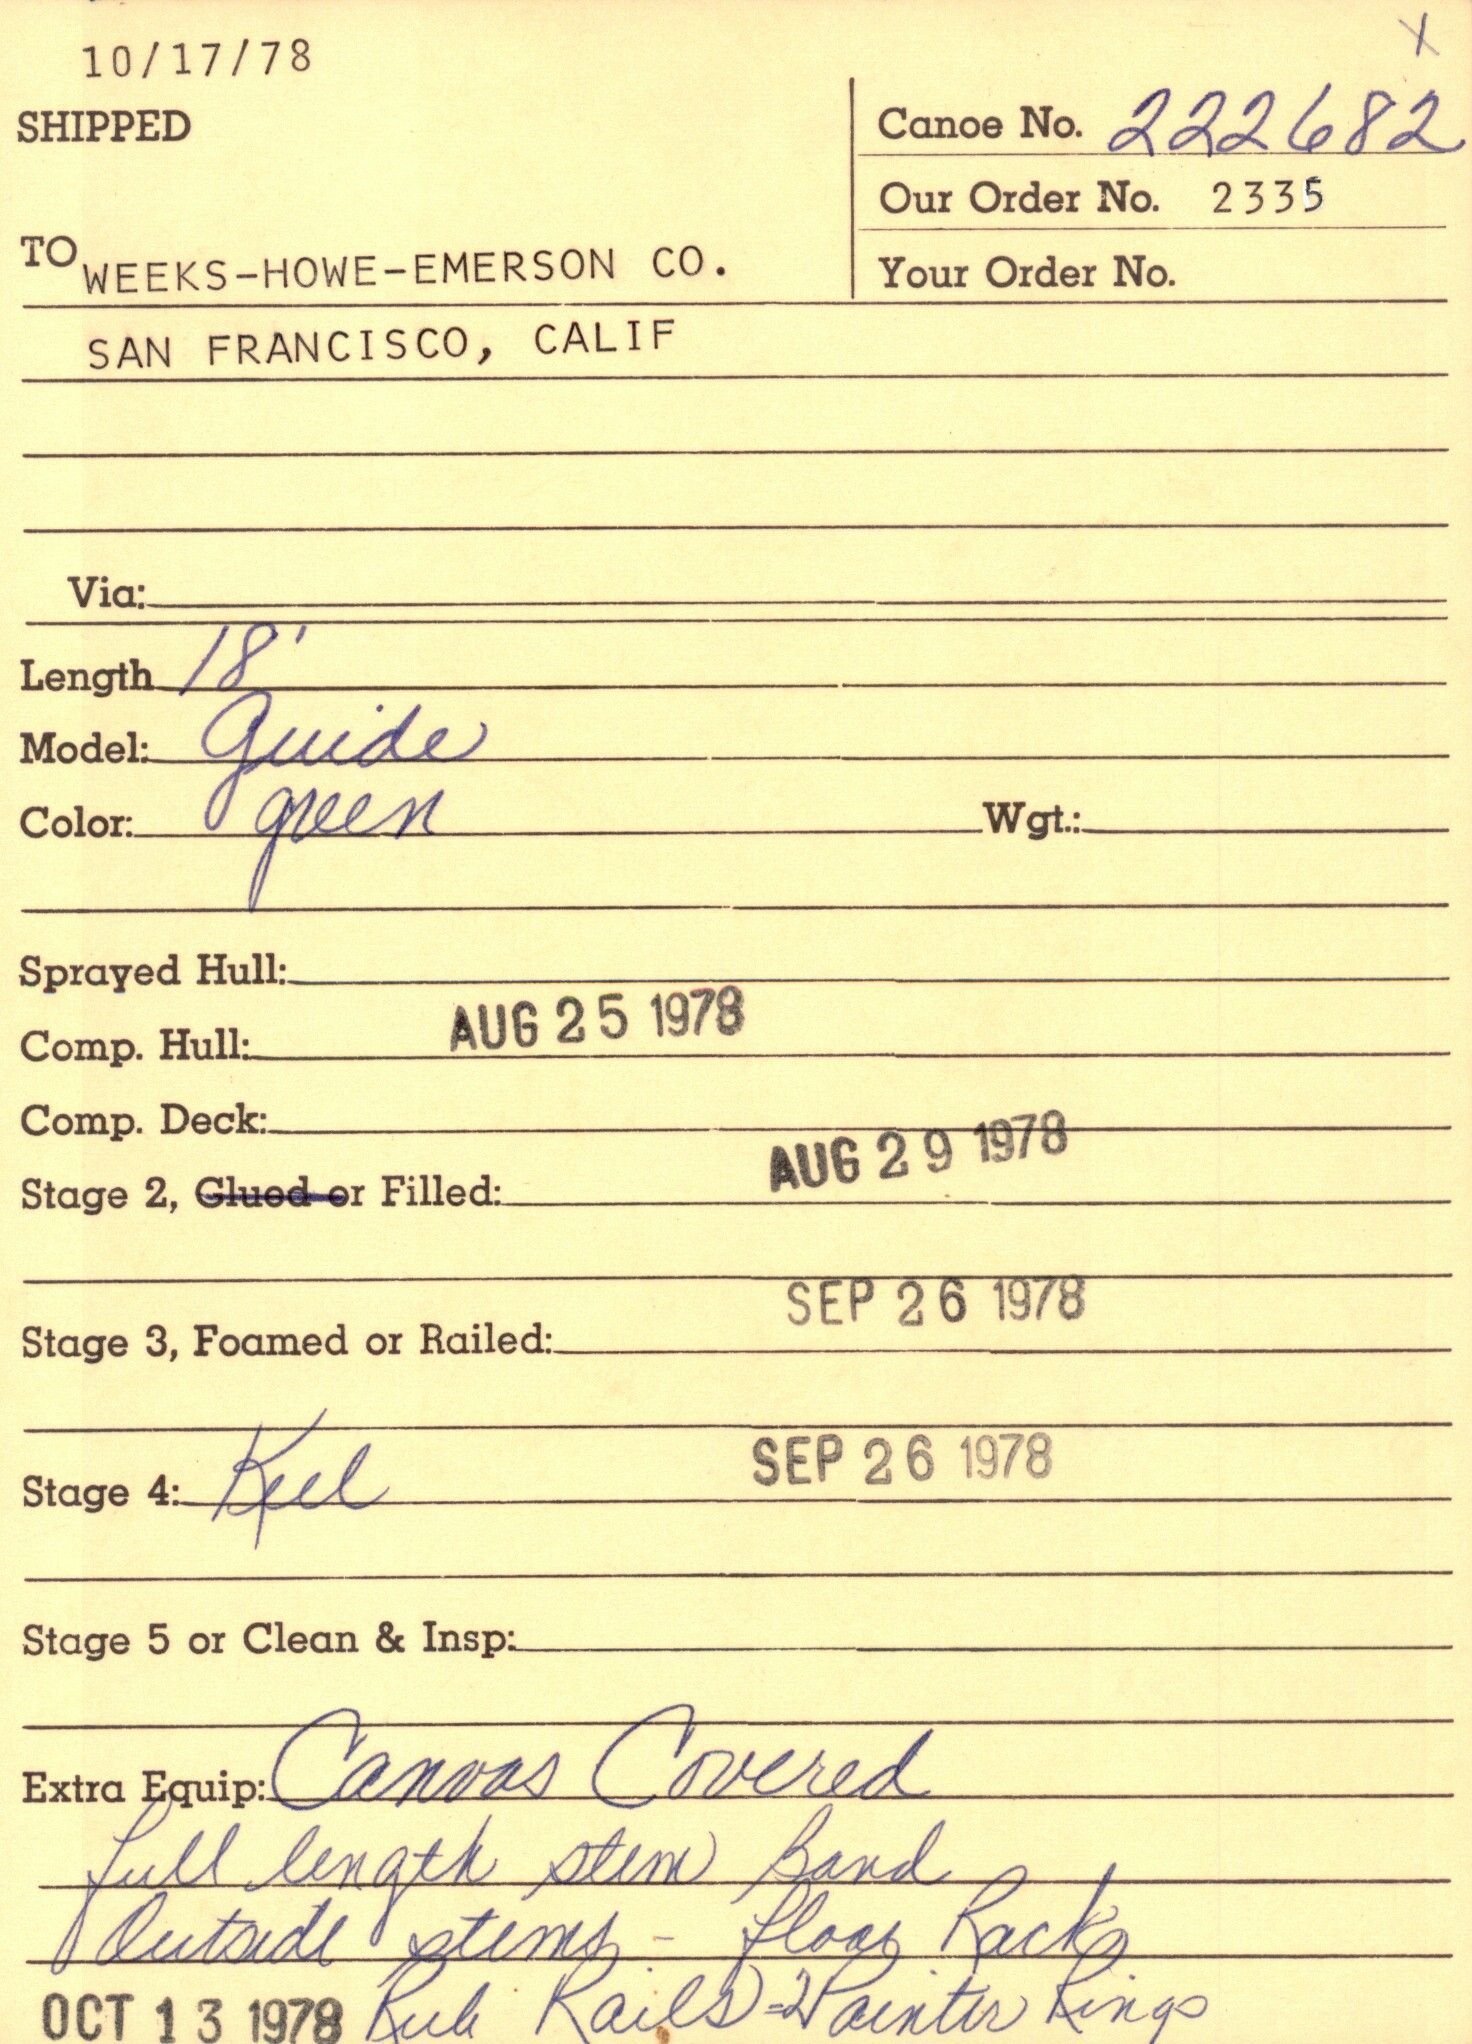 X
10/17/78
SHIPPED
Canoe No. 222682
Our Order No. 2335
TO WEEKS-HOWE-EMERSON CO.
Your Order No.
SAN FRANCISCO, CALIF
Via:
Length 18'
Model: Guide
Color: green Wgt.:
Sprayed Hull:
Comp. Hull: AUG 25 1978
Comp. Deck:
Stage 2, Glued or Filled: AUG 29 1978
Stage 3, Foamed or Railed: SEP 26 1978
Stage 4: Keel SEP 26 1978
Stage 5 or Clean & Insp:
Extra Equip: Canvas Covered
full length stem Band
Outside stems - floor Racks
OCT 13 1978 Rub Rails - 2 Painter Rings